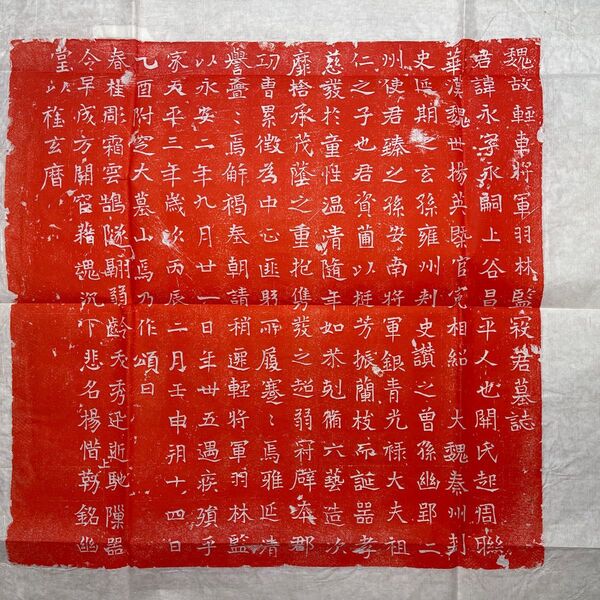 魏故輕車將軍羽林監寇君墓誌
君諱永字永嗣上谷昌平人也開氏起周聯
華漢魏世揚英槩官冕相紹 大魏秦州刺
史期之玄孫雍州刺史讚之曾孫幽郢二
州使君臻之孫安南將軍銀青光祿大夫祖
仁之子也君資莆以挺芳振蘭枝而誕器孝
慈發於童性温清隨年如恭剋脩六藝造次
靡捨承茂蔭之重抱儁發之超弱冠辟本郡
功曹累徵為中心匪躬所履蹇〻焉雅延清
譽亹〻焉解褐奉朝請稍遷輕將軍羽林監
以永安二年九月廿一日年卅五遇疾殞乎
家天平三年歲次丙辰二月壬申朔十四日
乙酉附窆大墓山焉乃作頌曰
春桂彫霜雲鵠隧翮弱齡夭秀迅逝馳隟器
今早成方開官藉魂沉下悲名揚上惜勒銘幽
堂以旌玄曆